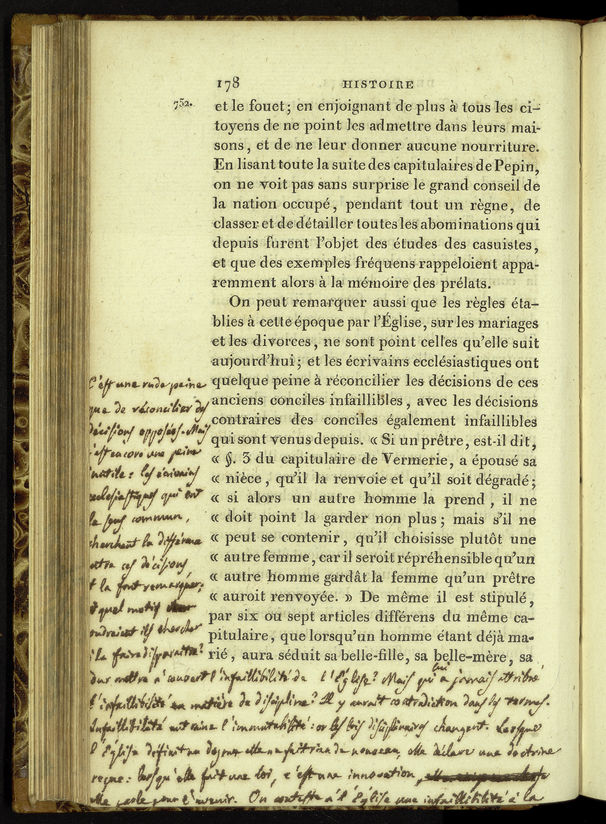 178 HISTOIRE
752.
et le fouet; en enjoignant de plus à tous les ci-
toyens de ne point les admettre dans leurs mai-
sons, et de ne leur donner aucune nourriture.
En lisant toute la suite des capitulaires de Pepin,
on ne voit pas sans surprise le grand conseil de
la nation occupé, pendant tout un règne, de
classer et de détailler toutes les abominations qui
depuis furent l'objet des études des casuistes,
et que des exemples fréquens rappeloient appa-
remment alors à la mémoire des prélats.
On peut remarquer aussi que les règles éta-
blies à cette époque par l'Église, sur les mariages
et les divorces, ne sont point celles qu'elle suit
aujourd'hui; et les écrivains ecclésiastiques ont
quelque peine à réconcilier les décisions de ces
anciens conciles infaillibles, avec les décisions
contraires des conciles également infaillibles
qui sont venus depuis. « Si un prêtre, est-il dit,
« §. 3 du capitulaire de Vermerie, a épousé sa
« nièce, qu'il la renvoie et qu'il soit dégradé;
« si alors un autre homme la prend, il ne
« doit point la garder non plus; mais s'il ne
« peut se contenir, qu'il choisisse plutôt une
« autre femme, car il seroit répréhensible qu'un
« autre homme gardât la femme qu'un prêtre
« auroit renvoyée. » De même il est stipulé,
par six ou sept articles différens du même ca-
pitulaire, que lorsqu'un homme étant déjà ma-
rié, aura séduit sa belle-fille, sa belle-mère, sa
C'est une rude peine
que de réconcilier des
décisions opposées. Mais
c'est encore une peine
inutile: les écrivains
ecclésiastiques qui ont
le sens commun,
cherchent la différence
entre ces décisions
et la font remarquer;
et quel motif
voudraient ils chercher
à la faire disparaître?
pour mettre à couvert l'infaillibilité de l'Église? Mais qui lui a jamais attribué
l'infaillibilité en matière de discipline? Il y aurait contradiction dans les termes.
Infaillibilité entraine l'immutabilité: or les lois disciplinaires changent. Lorsque
l'Église définit un dogme elle ne fait rien de nouveau, elle déclare une doctrine
reçue: lorsqu'elle fait une loi, c'est une innovation,
elle parle pour l'avenir. On conteste à l'Église une infaillibilité à la